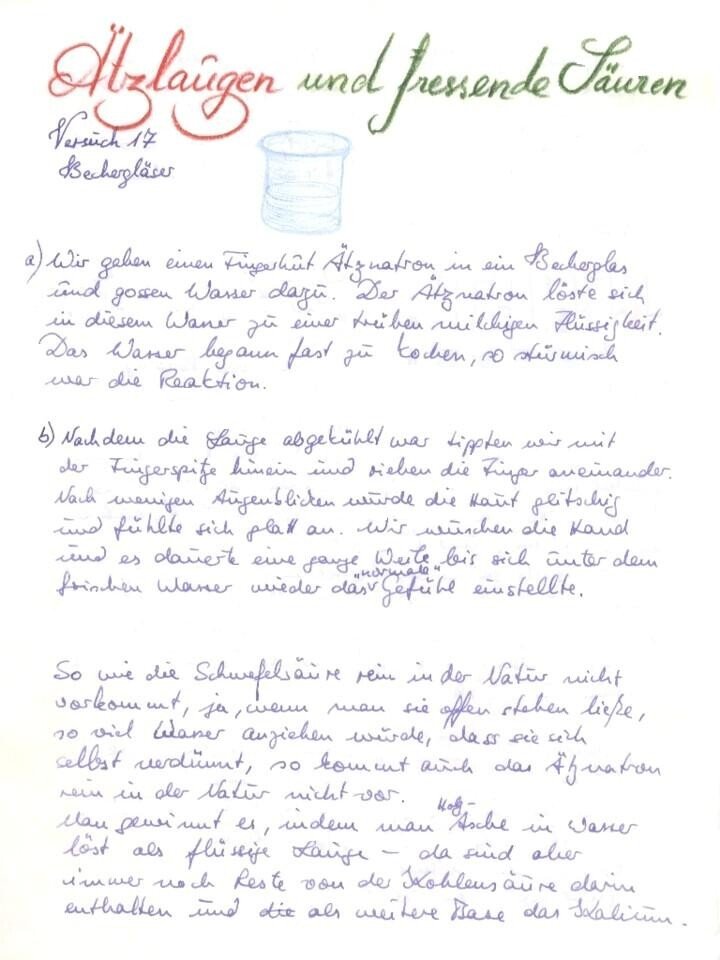 Ätzlaugen und fressende Säuren
Versuch 17
Bechergläser
a) Wir gaben einen Fingerhut Ätznatron in ein Becherglas
und gossen Wasser dazu. Der Ätznatron löste sich
in diesem Wasser zu einer trüben milchigen Flüssigkeit.
Das Wasser begann fast zu kochen, so stürmisch
war die Reaktion.
b) Nachdem die Lauge abgekühlt war tippten wir mit
der Fingerspitze hinein und rieben die Finger aneinander.
Nach wenigen Augenblicken wurde die Haut glitschig
und fühlte sich glatt an. Wir wuschen die Hand
und es dauerte eine ganze Weile bis sich unter dem
frischen Wasser wieder das "normale" Gefühl einstellte.
So wie die Schwefelsäure rein in der Natur nicht
vorkommt, ja, wenn man sie offen stehen ließe,
so viel Wasser anziehen würde, dass sie sich
selbst verdünnt, so kommt auch das Ätznatron
rein in der Natur nicht vor.
Man gewinnt es, indem man Holz-Asche in Wasser
löst als flüssige Lauge – da sind aber
immer noch Reste von der Kohlensäure darin
enthalten und die als weitere Base das Kalium.